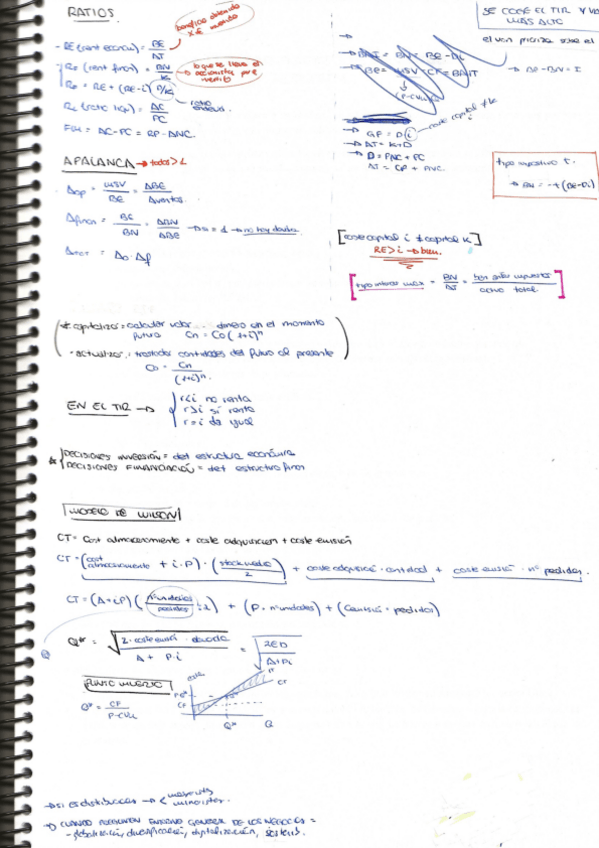 RATIOS
beneficio obtenido x € invertido
- RE (rent económ) = BE / AT
- RF (rent financ) = BN / K
lo que se lleva el accionista por € invertido
RF = RE + (RE-i) D/K
RL (ratio liqu) = AC / PC
FM = AC - PC = RP - ANC.
APALANCA → todos > 1
Aop = MSV / BE = ΔBE / Δventas
Afinan = BE / BN = ΔBN / ΔBE → si = 1 → no hay deuda
Atot = Ao · Af
SE COGE EL TIR Y VAN MÁS ALTO
el van prioriza sobre el
→ BAIT = BN = BE - DI
→ BE = MSV - CF = BAIT
(P-CVu)
→ BE - BN = I
→ GF = D i → coste capital ≠ k
→ AT = K + D
→ D = PNC + PC
AT = CP + PNC
tipo impositivo t.
[coste capital i ≠ capital K]
RE > i → bien.
[tipo interes max = BN / AT = ben antes impuestos / activo total]
* capitalizar = calcular valor dinero en el momento
futuro Cn = Co (1+i)ⁿ
· actualizar: trasladar cantidades del futuro al presente
Co = Cn / (1+i)ⁿ.
EN EL TIR →
r < i no renta
r > i sí renta
r = i da igual
* DECISIONES INVERSIÓN = det estructura económica
DECISIONES FINANCIACIÓN = det estructura financ
MODELO DE WILSON
CT = Cost almacenamiento + coste adquisicion + coste emisión
CT = (cost almacenamiento + i·P) · (stock medio / 2) + coste adquisició · cantidad + coste emisió · nº pedidos.
CT = (A + iP) (nº unidades / pedidos : 2) + (P · nº unidades) + (Cemisió · pedidos)
Q
Q* = √ 2 · coste emisió · demanda / A + P·i = √ 2ED / A + Pi
PUNTO MUERTO
Q* = CF / P-CVu
coste
IT
CT
CF
Q*
Q
→ si es distribucion → < mayorista
minorista.
→ CUANDO PREGUNTEN ENTORNO GENERAL DE LOS NEGOCIOS =
- globalización, diversificación, digitalización, sostenib.